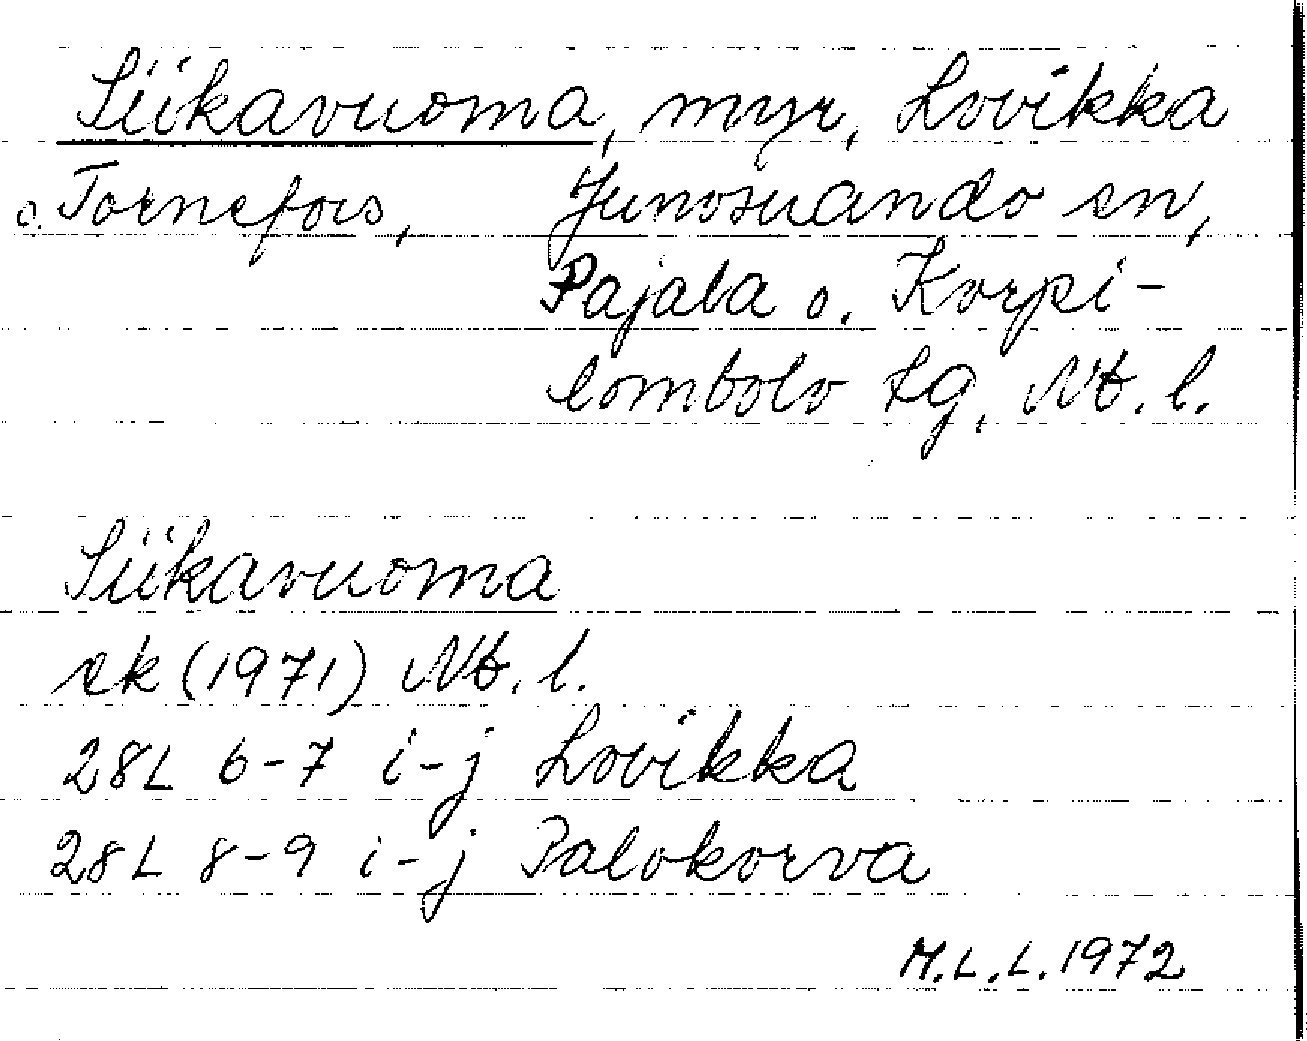 Siikavuoma, myr, Lovikka
o. Tornefors, Junosuando sn,
Pajala o. Korpi-
lombolo tg, Nb. l.
Siikavuoma
ek (1971) Nb. l.
28L 6-7 i-j Lovikka
28L 8-9 i-j Palokorva
M.L.L. 1972